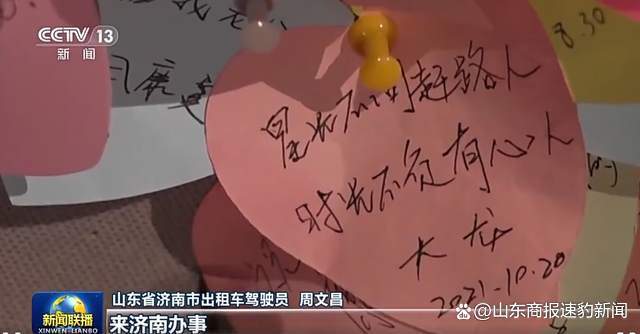 CCTV 13
新闻
8.30
星光不问赶路人
时光不负有心人
大龙
2021.10.20
新闻联播
XINWEN LIANBO
山东省济南市出租车驾驶员 周文昌
来济南办事
@山东商报速豹新闻